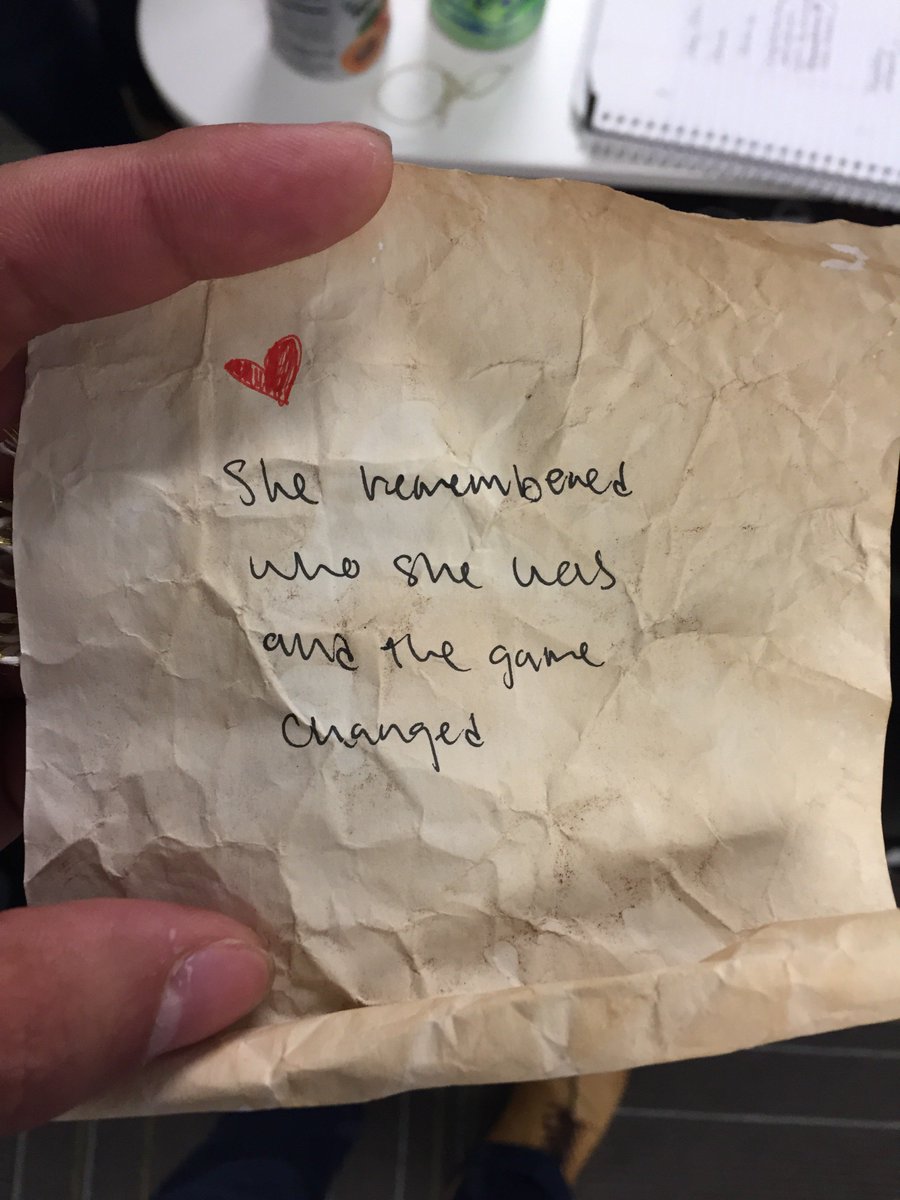 She remembered
who she was
and the game
changed